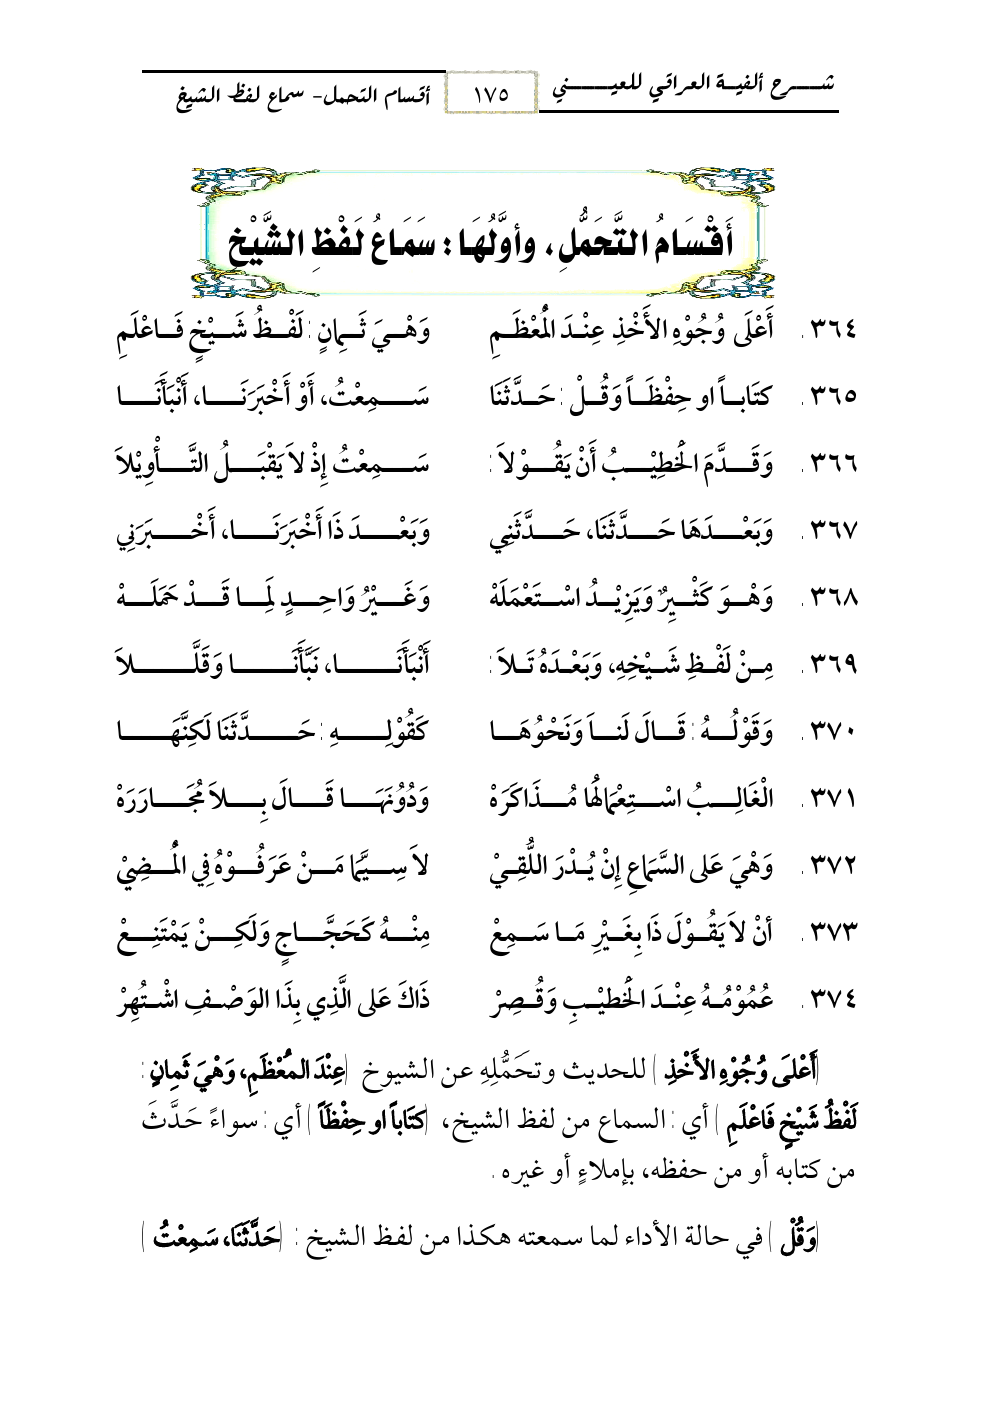 شـرح ألفية العراقي للعينـي
١٧٥
أقسام التحمل- سماع لفظ الشيخ
أَقْسَامُ التَّحَمُّلِ، وأوَّلُهَا: سَمَاعُ لَفْظِ الشَّيْخِ
٣٦٤. أَعْلَى وُجُوْهِ الأَخْذِ عِنْدَ الْمُعْظَمِ وَهْيَ ثَمِانٍ: لَفْظُ شَيْخٍ فَاعْلَمِ
٣٦٥. كتَاباً او حِفْظَاً وَقُلْ: حَدَّثَنَا سَمِعْتُ، أَوْ أَخْبَرَنَا، أَنْبَأَنَا
٣٦٦. وَقَدَّمَ الْخَطِيْبُ أَنْ يَقُوْلاَ: سَمِعْتُ إِذْ لاَ يَقْبَلُ التَّأْوِيْلاَ
٣٦٧. وَبَعْدَهَا حَدَّثَنَا، حَدَّثَنِي وَبَعْدَ ذَا أَخْبَرَنَا، أَخْبَرَنِي
٣٦٨. وَهْوَ كَثْيِرٌ وَيَزِيْدُ اسْتَعْمَلَهْ وَغَيْرُ وَاحِدٍ لِمَا قَدْ حَمَلَهْ
٣٦٩. مِنْ لَفْظِ شَيْخِهِ، وَبَعْدَهُ تَلاَ: أَنْبَأَنَا، نَبَّأَنَا وَقَلَّلاَ
٣٧٠. وَقَوْلُهُ: قَالَ لَناَ وَنَحْوُهَا كَقُوْلِهِ: حَدَّثَنَا لَكِنَّهَا
٣٧١. الْغَالِبُ اسْتِعْمَالُهَا مُذَاكَرَهْ وَدُوْنَهَا قَالَ بِلاَ مُجَارَرَهْ
٣٧٢. وَهْيَ عَلى السَّمَاعِ إِنْ يُدْرَ اللُّقِيْ لاَ سِيَّمَا مَنْ عَرَفُوْهُ فِي الْمُضِيْ
٣٧٣. أنْ لاَ يَقُوْلَ ذَا بِغَيْرِ مَا سَمِعْ مِنْهُ كَحَجَّاجٍ وَلَكِنْ يَمْتَنِعْ
٣٧٤. عُمُوْمُهُ عِنْدَ الْخَطيْبِ وَقُصِرْ ذَاكَ عَلى الَّذِي بِذَا الوَصْفِ اشْتُهِرْ
(أَعْلىَ وُجُوْهِ الأَخْذِ) للحديث وتحَمُّلِهِ عن الشيوخ (عِنْدَ المُعْظَمِ، وَهْيَ ثَمانٍ:
لَفْظُ شَيْخٍ فَاعْلَمِ) أي: السماع من لفظ الشيخ، (كتَاباً او حِفْظَاً) أي: سواءً حَدَّثَ
من كتابه أو من حفظه، بإملاءٍ أو غيره.
(وَقُلْ) في حالة الأداء لما سمعته هكذا من لفظ الشيخ: (حَدَّثَنَا، سَمِعْتُ)